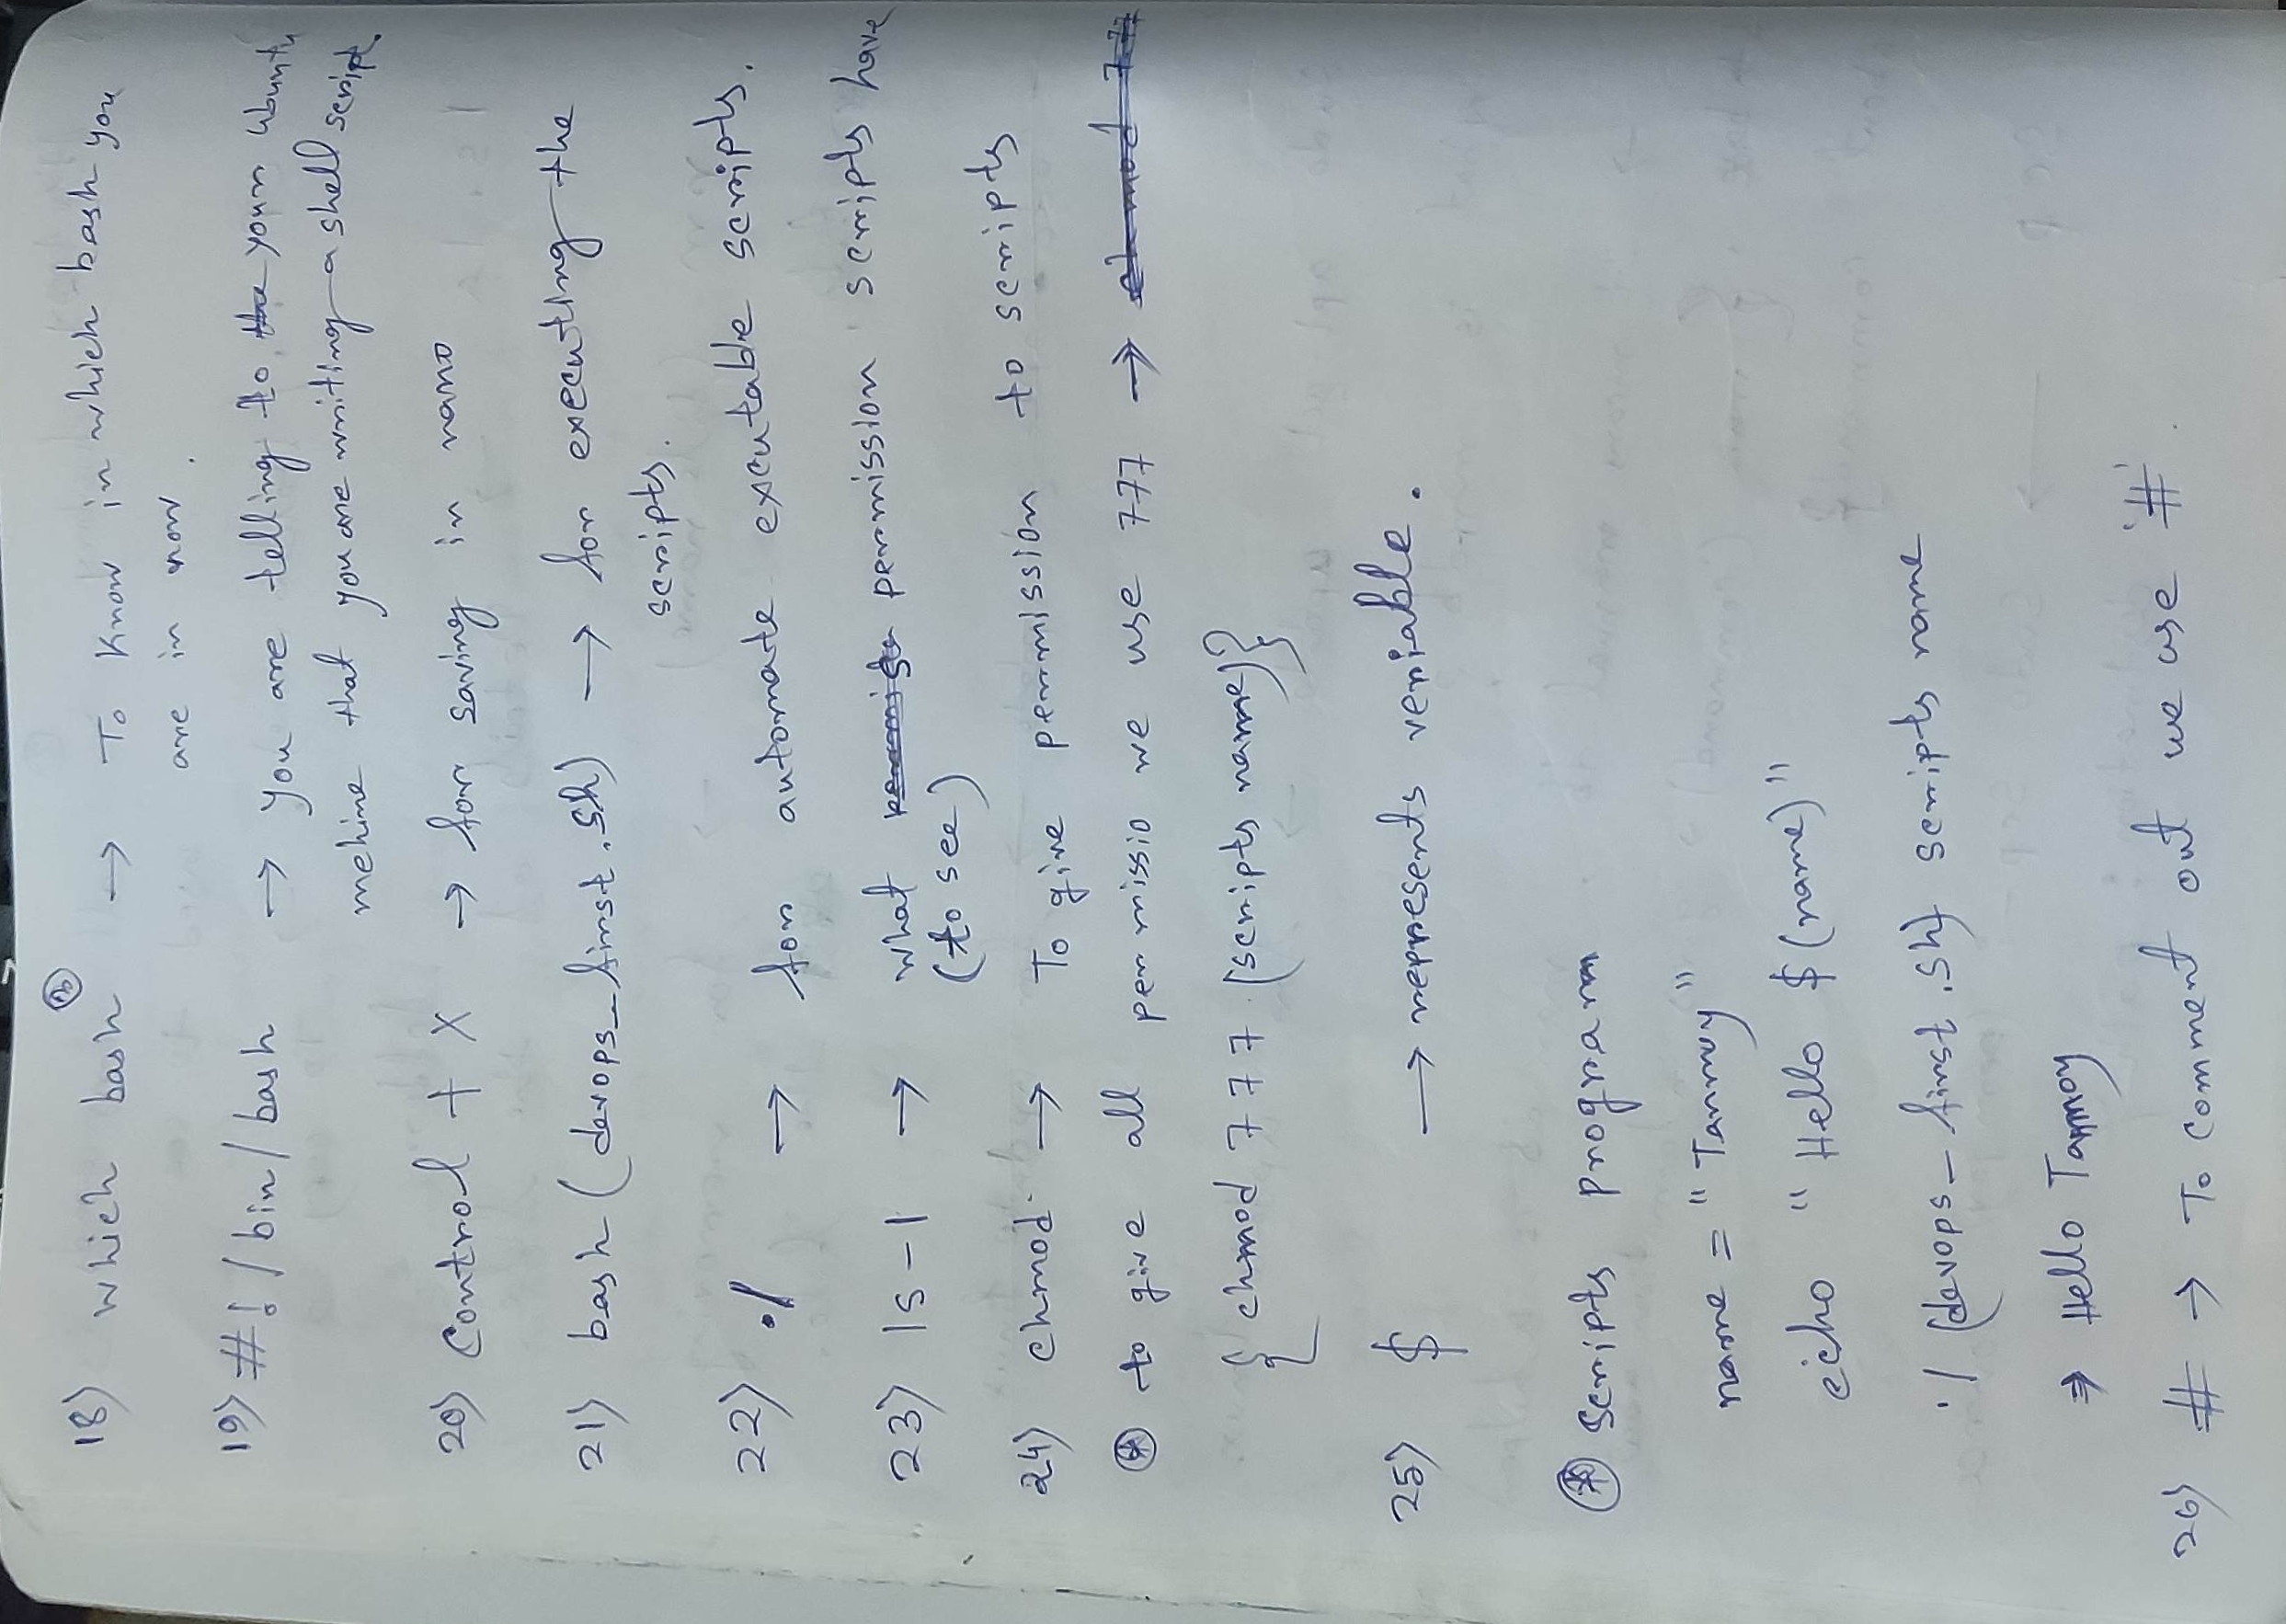 3
18) which bash → To Know in which bash you
are in now.
19) #! /bin/bash → you are telling to the your Ubuntu
mehine that you are writing a shell script.
20) Control + X → for saving in nano
21) bash (devops_first.sh) → for executing the
scripts.
22) ./ → for automate excutable scripts.
23) ls -l → what permission scripts have
(to see)
24) chmod → To give permission to scripts
* to give all permissio we use 777 → chmod 777
{ chmod 777 (scripts name)}
25) $ → represents veriable.
* scripts program
name = "Tanmoy"
echo "Hello $(name)"
./ (devops_first.sh) scripts name
⇒ Hello Tanmoy
26) # → To comment out we use '#'.